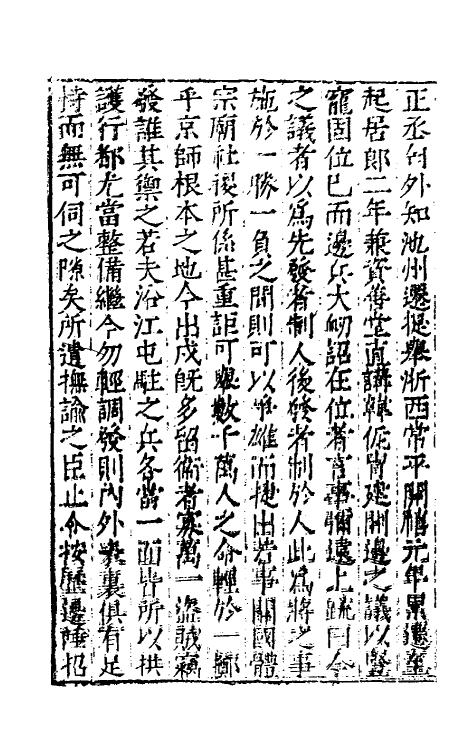 正丞匄外知池州遷提舉浙西常平開禧元年累遷至
起居郎二年兼資善堂直講韓侂胄建開邊之議以堅
寵固位已而邊兵大衂詔在位者言事彌遠上疏曰今
之議者以爲先發者制人後發者制於人此爲將之事
施於一勝一負之間則可以爭雄而捷出若事關國體
宗廟社稷所係甚重詎可舉數千萬人之命輕於一擲
乎京師根本之地今出戍旣多留衛者寡萬一盜賊竊
發誰其禦之若夫沿江屯駐之兵各當一面皆所以拱
護行都尤當整備繼今勿輕調發則内外表裏俱有足
恃而無可伺之隙矣所遣撫諭之臣止令按歷邊陲招